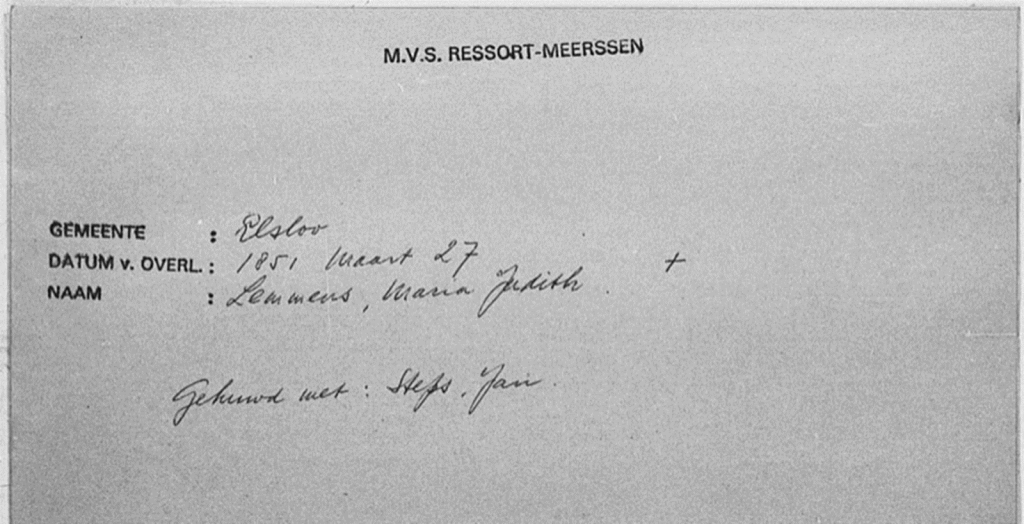 M.V.S. RESSORT-MEERSSEN
GEMEENTE : Elsloo
DATUM v. OVERL. : 1851 Maart 27 +
NAAM : Lemmens, Maria Judith
Gehuwd met : Steps, Jan.